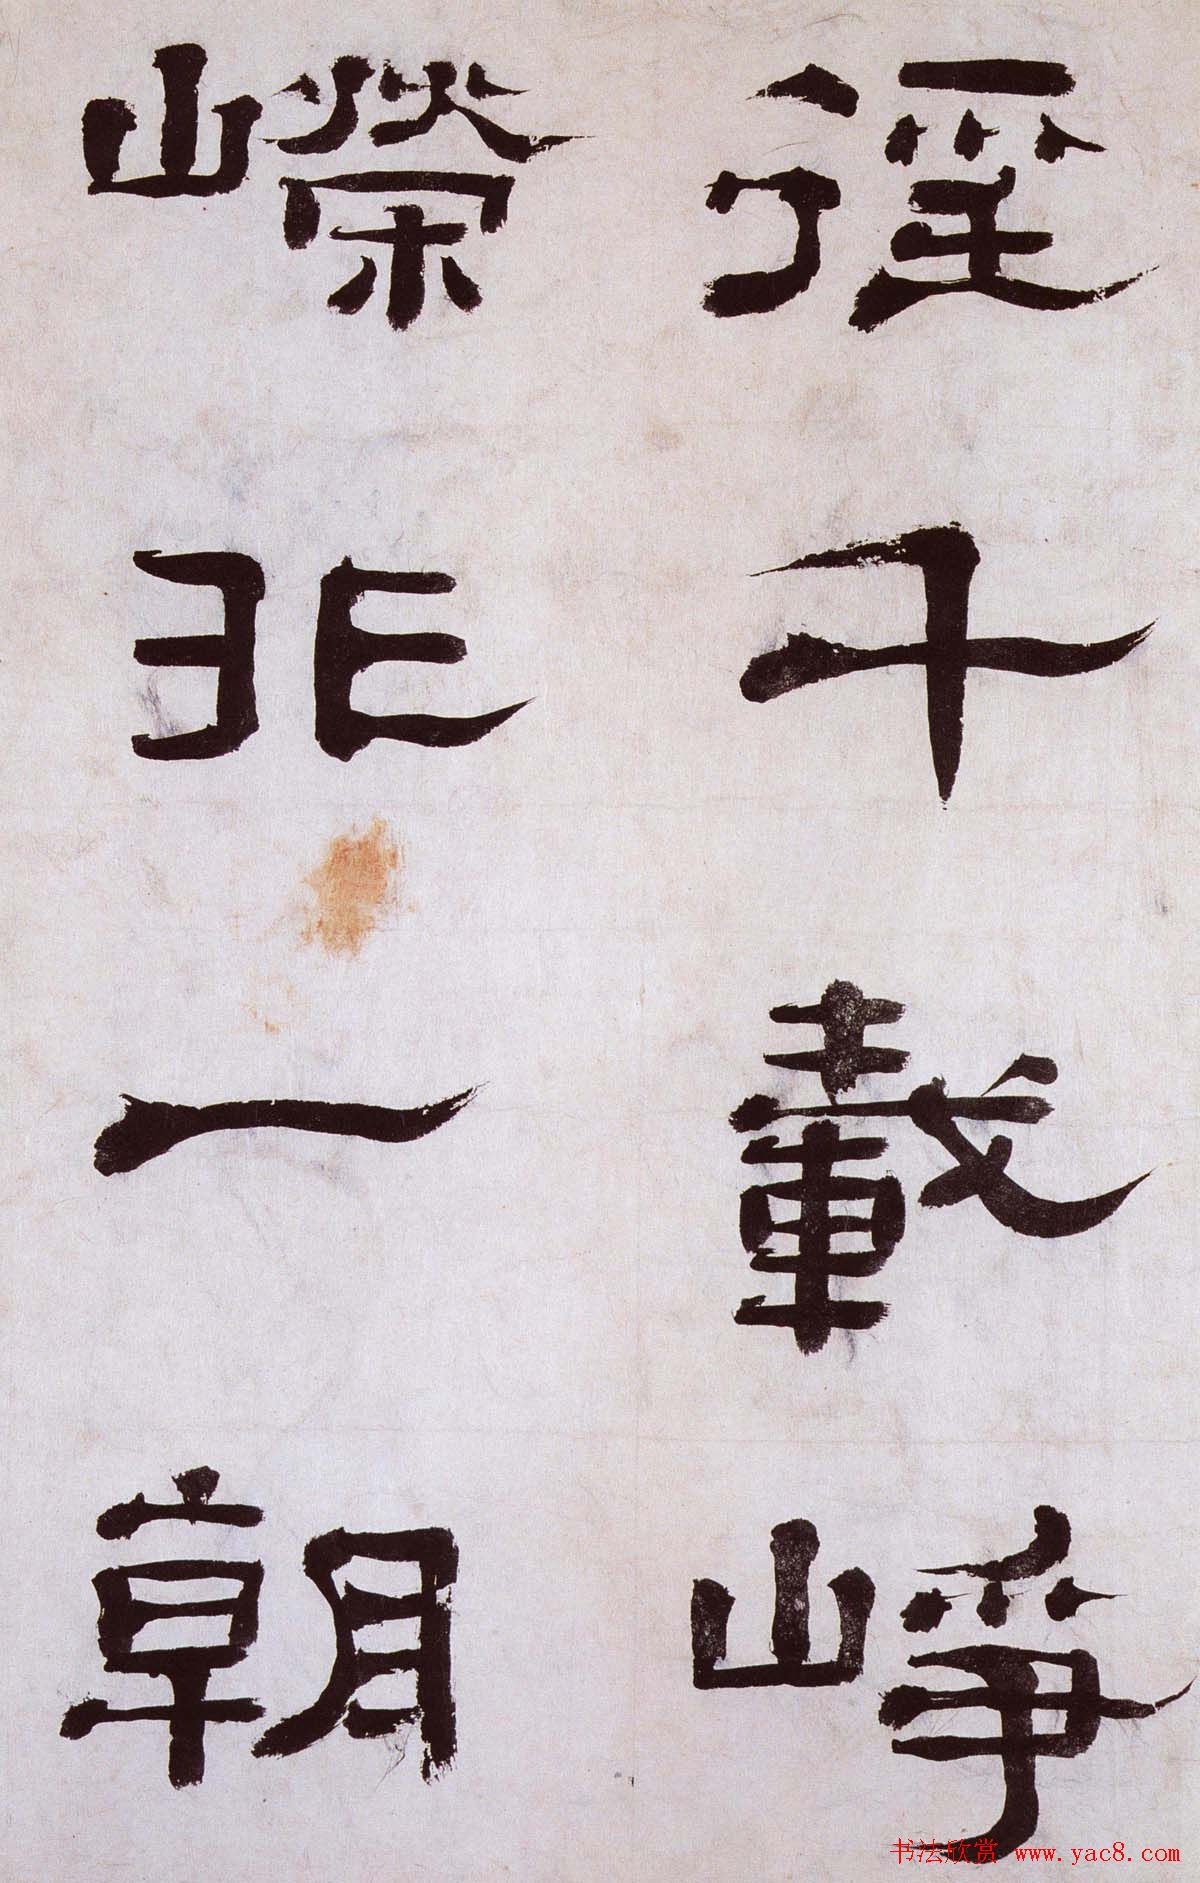 徑千載崢
嶸非一朝
书法欣赏 www.yac8.com